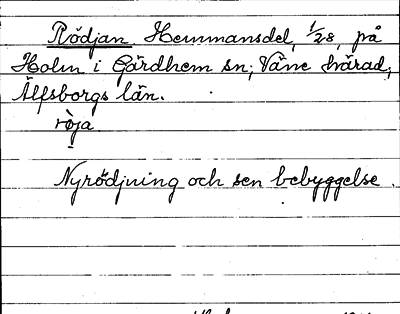 Rödjan. Hemmansdel, 1/28, på
Holm i Gärdhem sn, Väne härad,
Älfsborgs län.
ròja
Nyrödjning och sen bebyggelse.